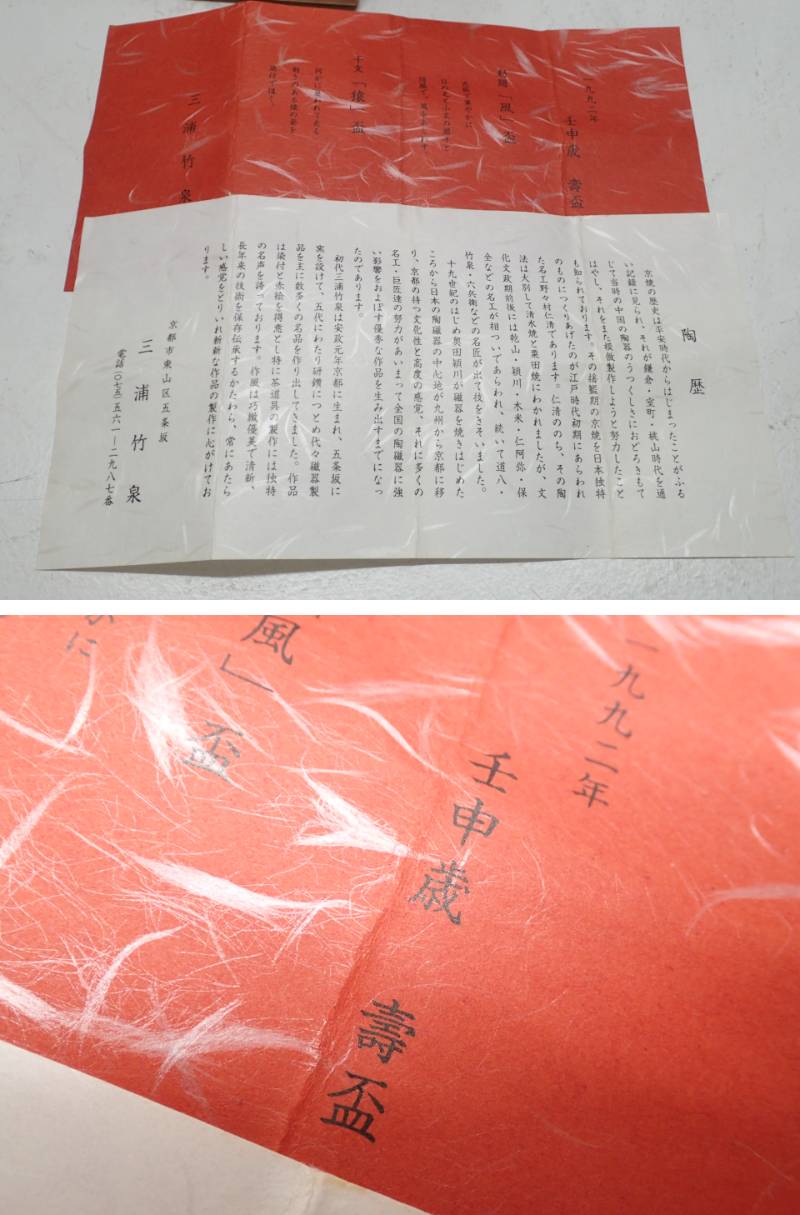 一九九二年
壬申歳　壽盃
「風」盃
十支「猿」盃
三浦竹泉
陶歴
京焼の歴史は平安時代からはじまったことがふる
い記録に見られ、それが鎌倉・室町・桃山時代を通
じて当時の中国の陶器のうつくしさにおどろきもて
はやし、それをまた模倣製作しようと努力したこと
も知られております。その揺籃期の京焼を日本独特
のものにつくりあげたのが江戸時代初期にあらわれ
た名工野々村仁清であります。仁清ののち、その陶
法は大別して清水焼と粟田焼にわかれましたが、文
化文政期前後には乾山・頴川・木米・仁阿弥・保
全などの名工が相ついであらわれ、続いて道八・
竹泉・六兵衛などの名匠が出て技をきそいました。
十九世紀のはじめ奥田頴川が磁器を焼きはじめた
ころから日本の陶磁器の中心地が九州から京都に移
り、京都の持つ文化性と高度の感覚、それに多くの
名工・巨匠達の努力があいまって全国の陶磁器に強
い影響をおよぼす優秀な作品を生み出すまでになっ
たのであります。
初代三浦竹泉は安政元年京都に生まれ、五条坂に
窯を設けて、五代にわたり研鑽につとめ代々磁器製
品を主に数多くの名品を作り出してきました。作品
は染付と赤絵を得意とし特に茶道具の製作には独特
の名声を誇っております。作風は巧緻優美で清新、
長年来の技術を保存伝承するかたわら、常にあたら
しい感覚をとりいれ斬新な作品の製作に心がけてお
ります。
京都市東山区五条坂
三浦竹泉
電話〇七五)五六一ー二九八七番
一九九二年
壬申歳　壽盃
風」盃
かに